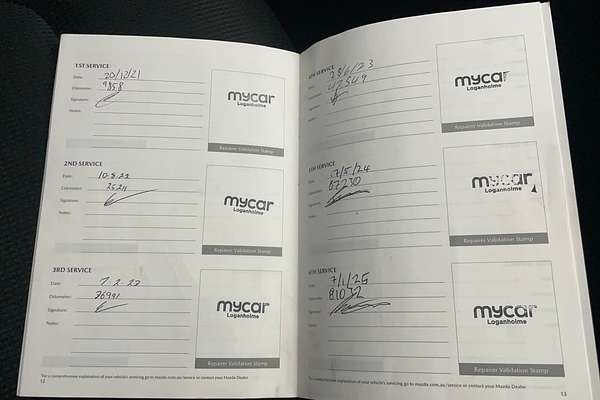 1ST SERVICE
Date: 20/12/21
Odometer: 9858
Signature:
Notes:
mycar
Loganholme
Repairer Validation Stamp
2ND SERVICE
Date:
Odometer:
Signature:
Notes:
mycar
Loganholme
Repairer Validation Stamp
3RD SERVICE
Date: 7.2.23
Odometer: 36991
Signature:
Notes:
mycar
Loganholme
Repairer Validation Stamp
*For a comprehensive explanation of your vehicle's servicing go to mazda.com.au/service or contact your Mazda Dealer
12
4TH SERVICE
28/6/23
42549
mycar
Loganholme
Repairer Validation Stamp
5TH SERVICE
17/5/24
67230
mycar
Loganholme
Repairer Validation Stamp
6TH SERVICE
7/1/25
81032
mycar
Loganholme
Repairer Validation Stamp
*For a comprehensive explanation of your vehicle's servicing go to mazda.com.au/service or contact your Mazda Dealer
13